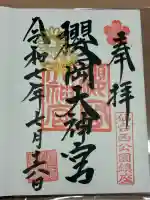 奉拝
仙台西公園鎮座
櫻岡大神宮
令和七年七月十六日